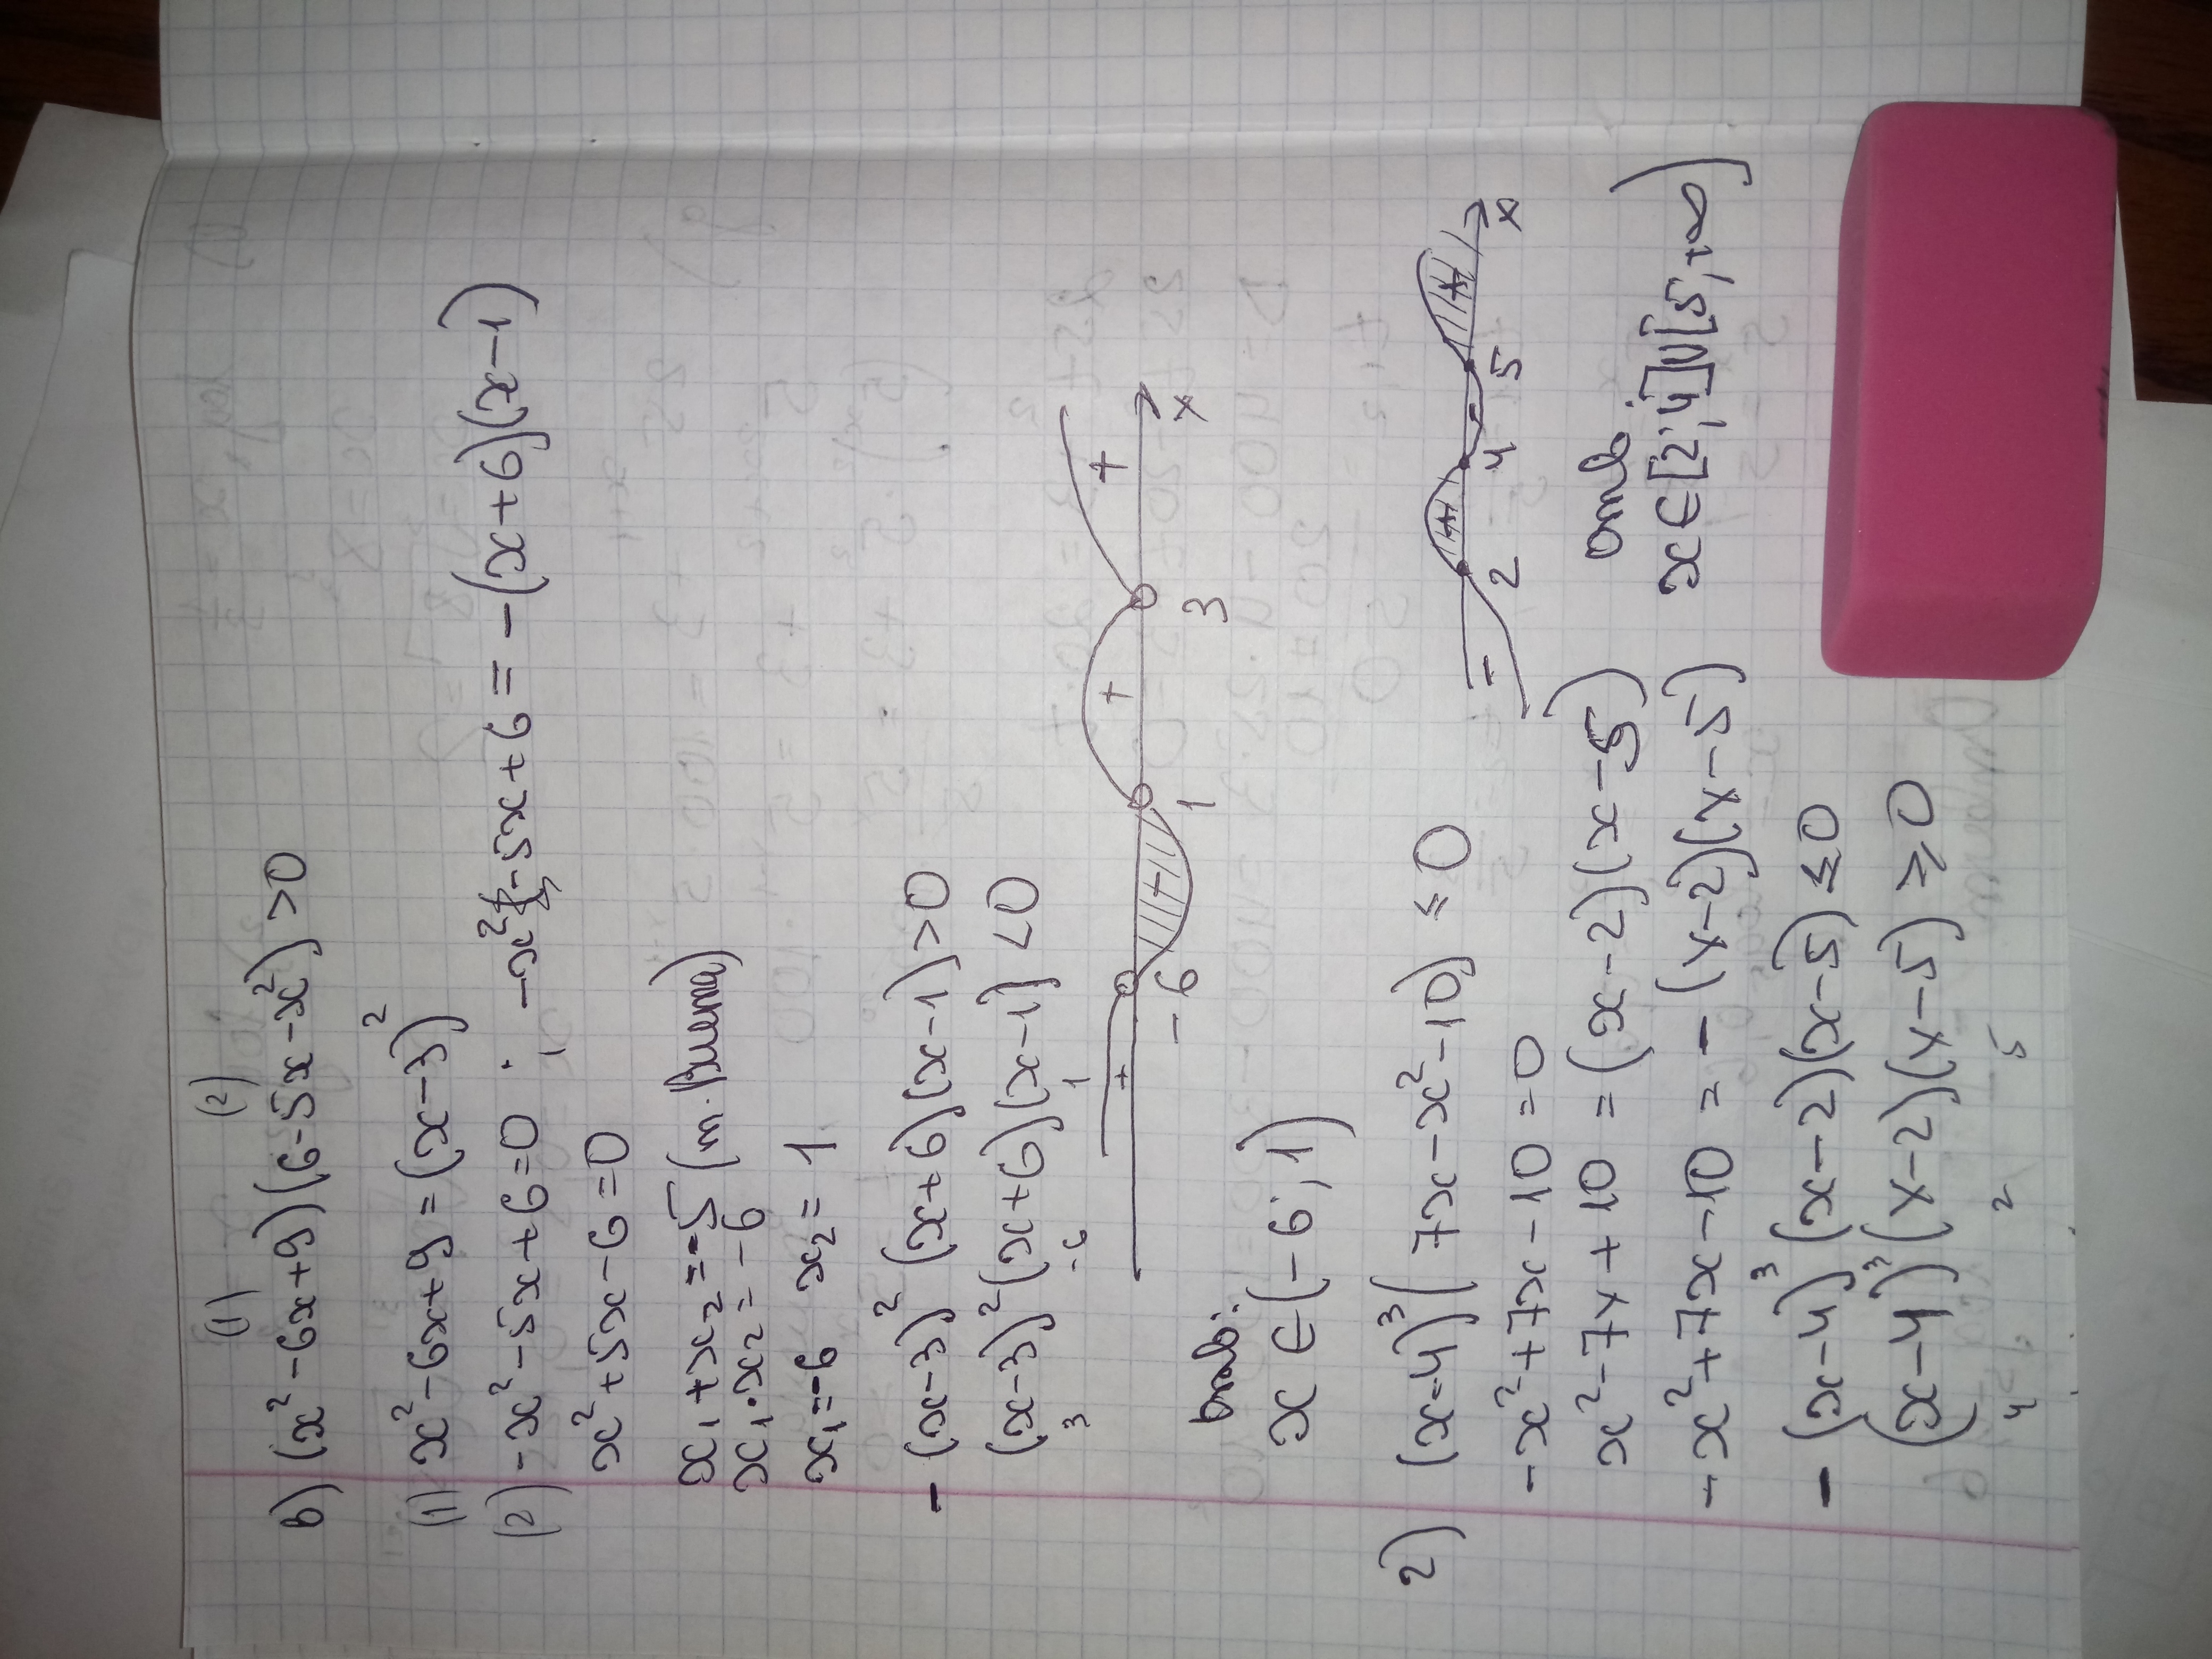 (1) (2)
в) (x²-6x+9)(6-5x-x²)>0
(1) x²-6x+9=(x-3)²
(2) -x²-5x+6=0; -x²-5x+6=-(x+6)(x-1)
x²+5x-6=0
x₁+x₂=-5 (т. Виета)
x₁·x₂=-6
x₁=-6 x₂=1
-(x-3)²(x+6)(x-1)>0
(x-3)²(x+6)(x-1)<0
3 -6 1
+ - + +
-6 1 3 x
Отв:
x∈(-6;1)
2) (x-4)³(7x-x²-10)≤0
-x²+7x-10=0
x²-7x+10=(x-2)(x-5)
-x²+7x-10=-(x-2)(x-5)
-(x-4)³(x-2)(x-5)≤0
(x-4)³(x-2)(x-5)≥0
4 2 5
- + - +
2 4 5 x
Отв:
x∈[2;4]U[5;+∞)